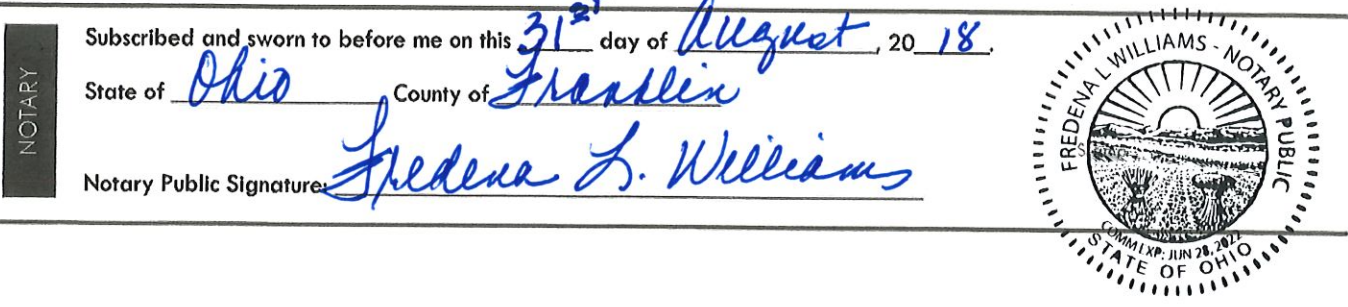 NOTARY
Subscribed and sworn to before me on this 31st day of August, 20 18.
State of Ohio County of Franklin
Notary Public Signature: Fredena L. Williams
FREDENA L WILLIAMS - NOTARY PUBLIC
COMM EXP: JUN 28, 2022
STATE OF OHIO